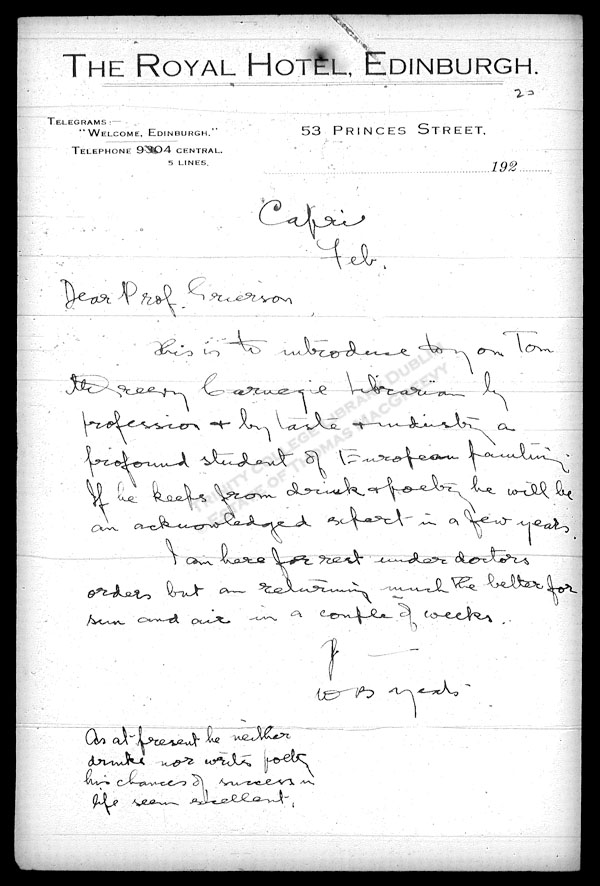 THE ROYAL HOTEL, EDINBURGH.
20
TELEGRAMS:—
"WELCOME, EDINBURGH."
TELEPHONE 9304 CENTRAL.
5 LINES.
53 PRINCES STREET,
192
Capri
Feb.
Dear Prof. Grierson,
This is to introduce to you Tom
McGreevy Carnegie Librarian by
profession & by taste & industry a
profound student of European painting.
If he keeps from drink & poetry he will be
an acknowledged expert in a few years.
I am here for rest under doctors
orders but am returning much the better for
sun and air in a couple of weeks.
W B Yeats
As at present he neither
drinks nor writes poetry
his chances of success in
life seem excellent.
TRINITY COLLEGE LIBRARY DUBLIN
ESTATE OF THOMAS MACGREEVY